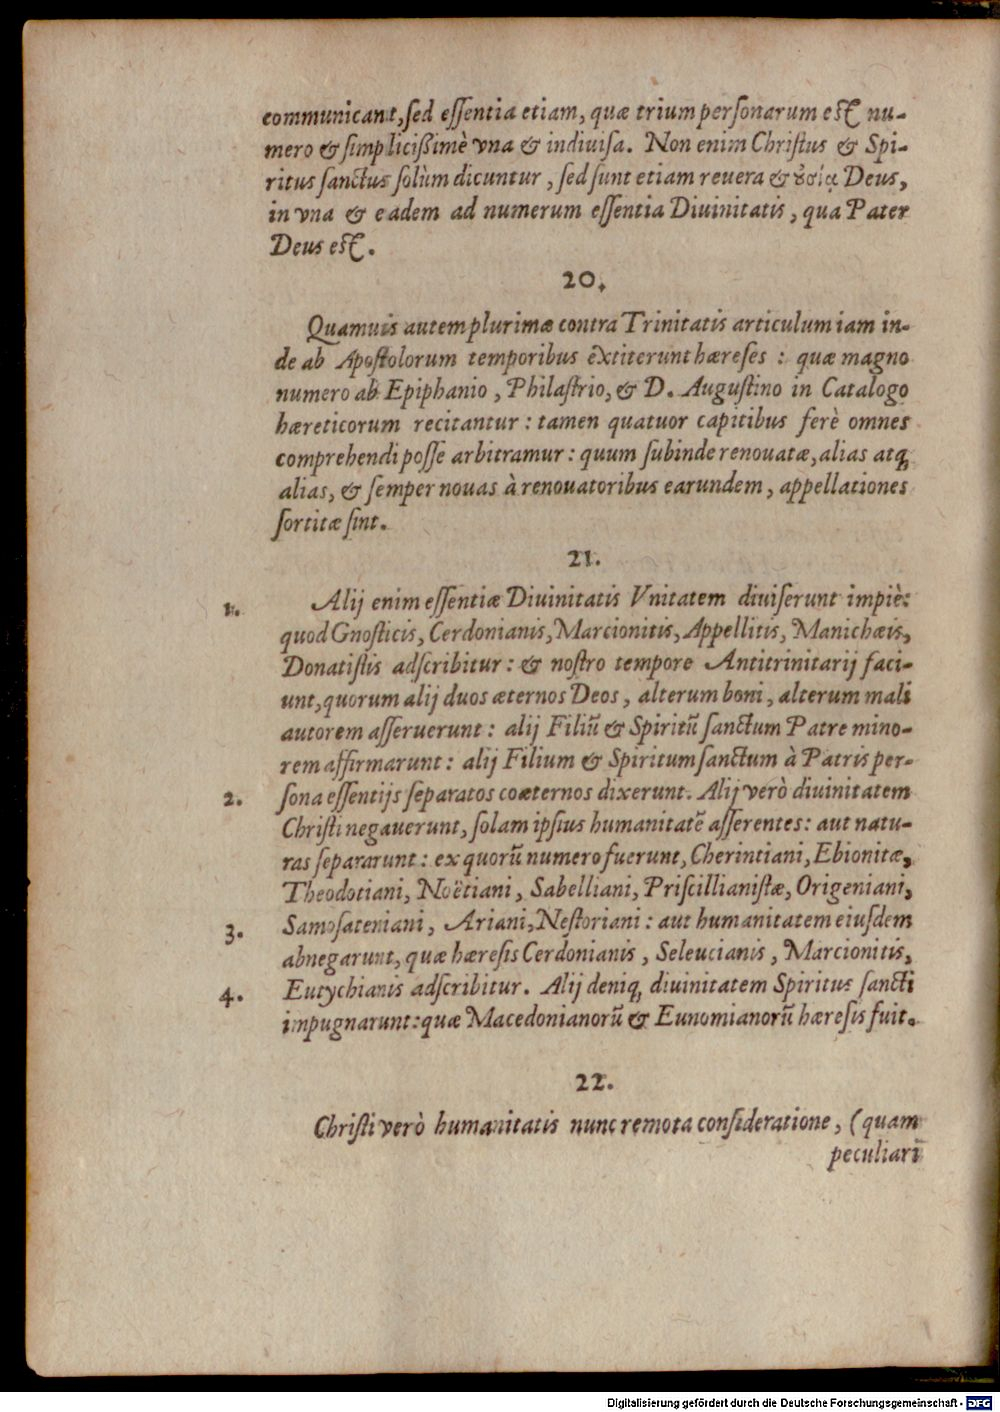 communicant, ſed eſſentia etiam, quæ trium perſonarum eſt nu-
mero & ſimplicißimè vna & indiuiſa. Non enim Chriſtus & Spi-
ritus ſanctus ſolùm dicuntur, ſed ſunt etiam reuera & ȣσίᾳ Deus,
in vna & eadem ad numerum eſſentia Diuinitatis, qua Pater
Deus eſt.
20.
Quamuis autem plurimæ contra Trinitatis articulum iam in-
de ab Apoſtolorum temporibus extiterunt hæreſes : quæ magno
numero ab Epiphanio, Philaſtrio, & D. Auguſtino in Catalogo
hæreticorum recitantur : tamen quatuor capitibus ferè omnes
comprehendi poſſe arbitramur : quum ſubinde renouatæ, alias atq;
alias, & ſemper nouas à renouatoribus earundem, appellationes
ſortitæ ſint.
21.
1. Alij enim eſſentiæ Diuinitatis Vnitatem diuiſerunt impiè:
quod Gnoſticis, Cerdonianis, Marcionitis, Appellitis, Manichæis,
Donatiſtis adſcribitur : & noſtro tempore Antitrinitarij faci-
unt, quorum alij duos æternos Deos, alterum boni, alterum mali
autorem aſſeruerunt : alij Filiũ & Spiritũ ſanctum Patre mino-
rem affirmarunt : alij Filium & Spiritum ſanctum à Patris per-
2. ſona eſſentijs ſeparatos coæternos dixerunt. Alij verò diuinitatem
Chriſti negauerunt, ſolam ipſius humanitatẽ aſſerentes : aut natu-
ras ſepararunt : ex quorũ numero fuerunt, Cherintiani, Ebionitæ,
Theodotiani, Noëtiani, Sabelliani, Priſcillianiſtæ, Origeniani,
3. Samoſateniani, Ariani, Neſtoriani : aut humanitatem eiuſdem
abnegarunt, quæ hæreſis Cerdonianis, Seleucianis, Marcionitis,
4. Eutychianis adſcribitur. Alij deniq; diuinitatem Spiritus ſancti
impugnarunt : quæ Macedonianorũ & Eunomianorũ hæreſis fuit.
22.
Chriſti verò humanitatis nunc remota conſideratione, (quam
peculiari
Digitalisierung gefördert durch die Deutsche Forschungsgemeinschaft - DFG